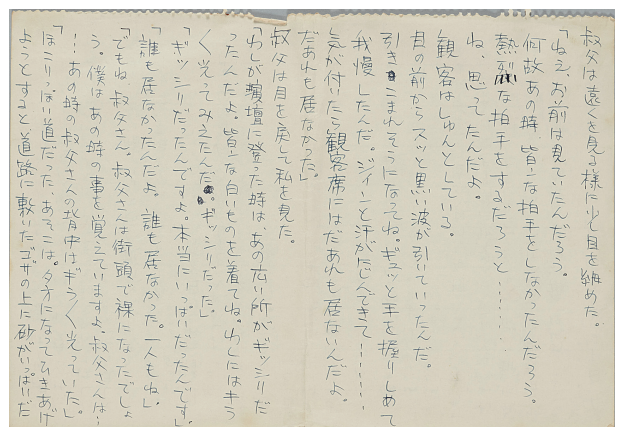 叔父は遠くを見る様に少し目を細めた。
「ねえ、お前は見ていたんだろう。
何故あの時、皆云な拍手をしなかったんだろう。
熱烈な拍手をするだろうと……
ね、思ってたんだよ。
観客はしゅんとしている。
目の前からスッと黒い波が引いていったんだ。
引きこまれそうになってね。ギュッと手を握りしめて
我慢したんだ。ジイーンと汗がにじんできて………
気が付いたら観客席にはだあれも居ないんだよ。
だあれも居なかった」
叔父は目を戻して私を見た。
「わしが演壇に登った時は、あの広い所がギッシリだ
ったんだよ。皆云な白いものを着てね。わしにはキラ
く光ってみえたんだ。ギッシリだった」
「ギッシリだったんですよ。本当にいっぱいだったんです」
「誰も居なかったんだよ。誰も居なかった。一人もね」
「でもね、叔父さん。叔父さんは街頭で裸になったでしょ
う。僕はあの時の事を覚えていますよ。叔父さんは…
…あの時の叔父さんの背中はギラく光っていた」
「ほこりっぽい道だった、あそこは。夕方になってひきあげ
ようとすると道路に敷いたゴザの上に砂がいっぱいだ